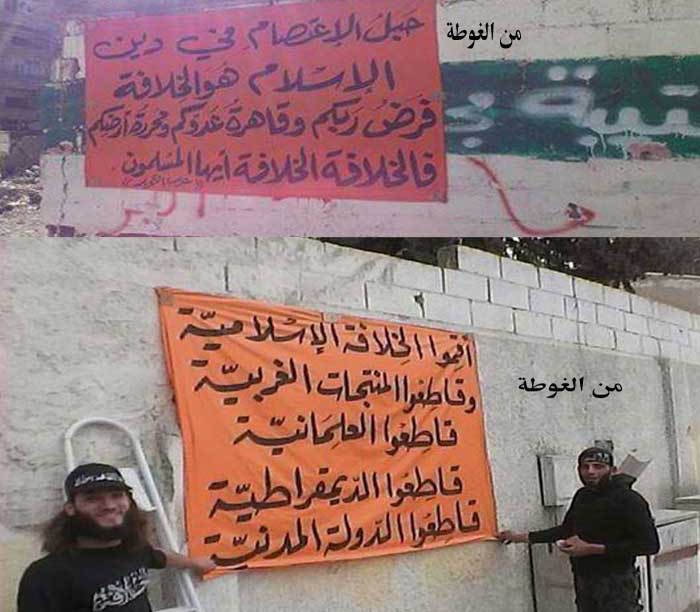 من الغوطة
حبل الإعتصام في دين
الإسلام هو الخلافة
فرض ربكم وقاهرة عدوكم ومحررة أرضكم
فالخلافة الخلافة أيها المسلمون
من الغوطة
أقيموا الخلافة الإسلامية
وقاطعوا المنتجات الغربية
قاطعوا العلمانية
قاطعوا الديمقراطية
قاطعوا الدولة المدنية